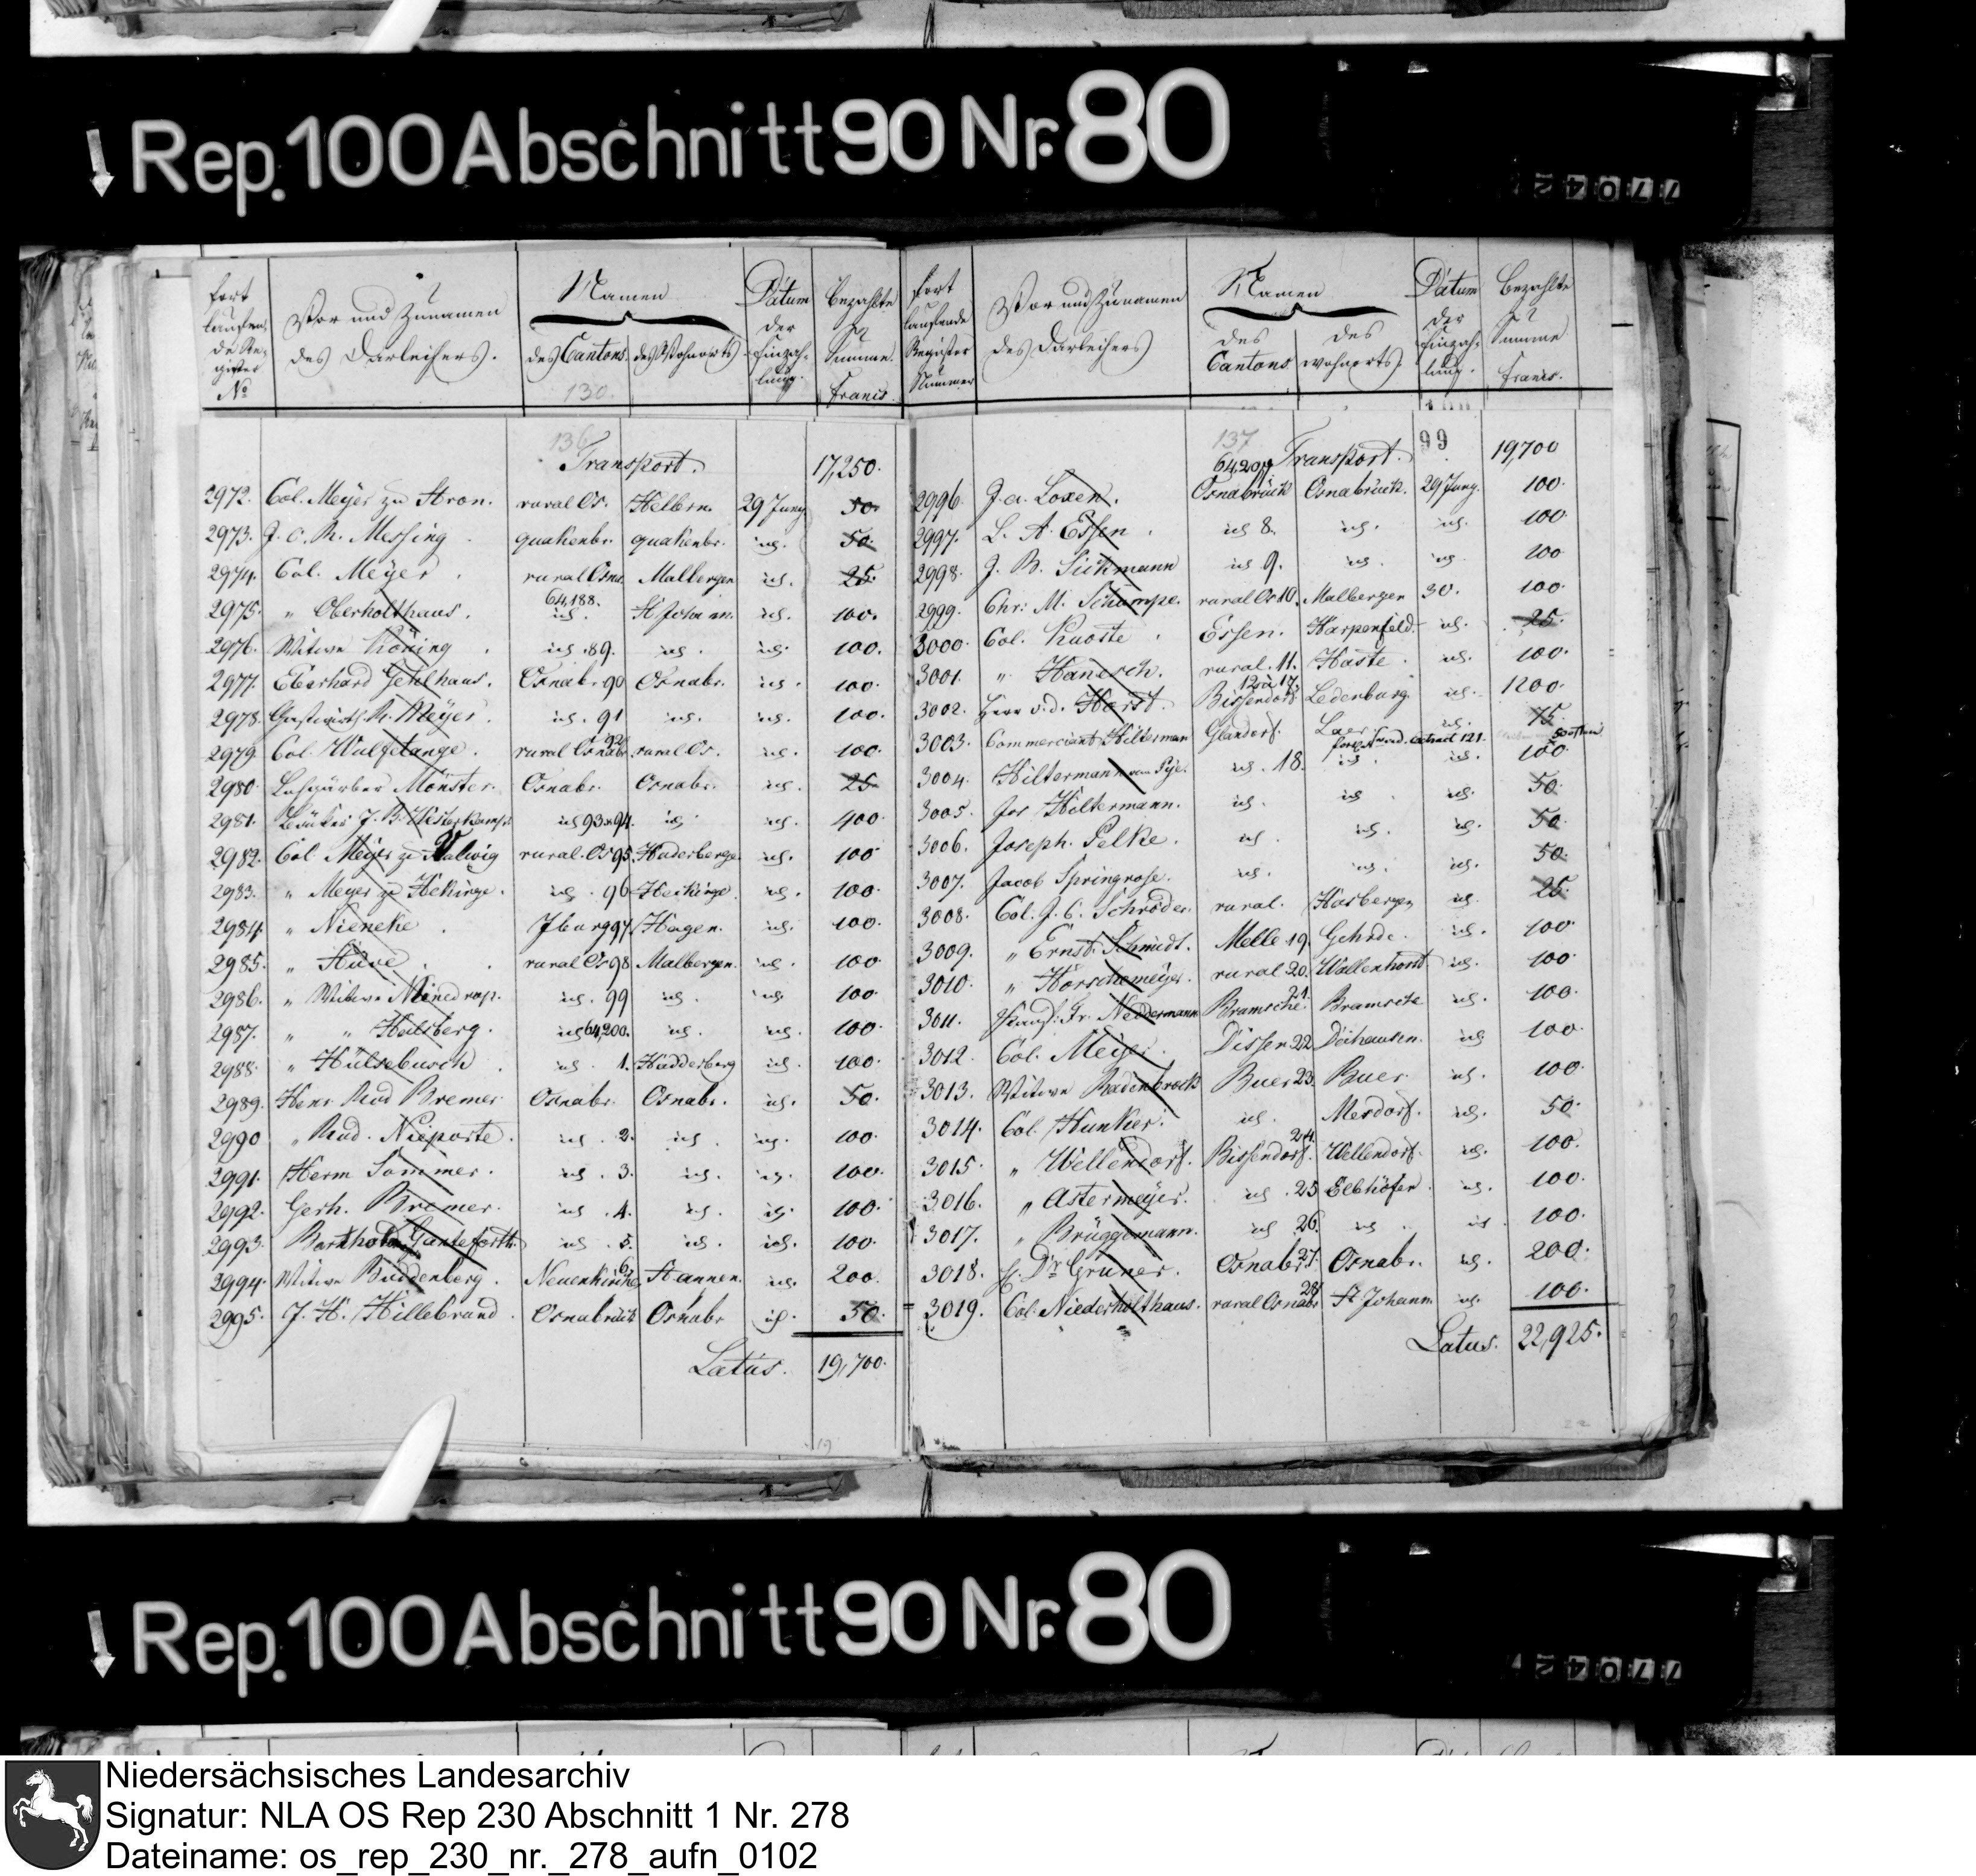 Rep. 100 Abschnitt 90 Nr. 80
77042
fort laufende Register No
Vor und Zunamen des Darleihers.
Namen
des Cantons. des Wohnorts
Datum der Einzahlung.
Bezahlte Summe. francs.
130.
136
Transport. 17,250.
2972. Col. Meyer zu Stron. rural Os. Hellern. 29 Juny 50.
2973. J. C. R. Messing quakenbr. quakenbr. id. 50.
2974. Col. Meyer. rural Osna. Malbergen id. 25.
2975. " Oberholthaus. 64,188. id. St. Johann. id. 100.
2976. Witwe Köning id. 89. id. id. 100.
2977. Eberhard Gehlhaus. Osnab. 90 Osnabr. id. 100.
2978. Gastwirth R. Meyer. id. 91 id. id. 100.
2979. Col. Wulfetange. rural Osnabr. 92 rural Os. id. 100.
2980. Lohgärber Mönster. Osnabr. Osnabr. id. 25
2981. Bäcker J. B. Westerkamp id 93 a 94. id. id. 400.
2982. Col. Meyer zu Malwig rural. Os 95. Haderberge id. 100
2983. " Meyer zu Hekinge. id. 96 Hekinge id. 100.
2984. " Nieneke Iburg 97. Hagen. id. 100.
2985. " Hüve. rural Os 98 Malbergen. id. 100.
2986. " Witwe Niedrop. id. 99 id. id. 100.
2987. " " Halsberg. id 64,200. id. id. 100.
2988. " Hülsebusch id. 1. Hadderberg id. 100.
2989. Henr Rud Bremer Osnabr. Osnabr. id. 50.
2990 " Rud. Nieporte. id. 2. id. id. 100.
2991. Herm Sommer. id. 3. id. id. 100.
2992. Gerh. Bremer. id. 4. id. id. 100.
2993. Ganteforth. id. 5. id. id. 100.
2994. Witwe Buddenberg. Neuenkirche 6. id. 200.
2995. J. H. Hillebrand. Osnabrück Osnabr. id. 50.
Latus. 19,700.
fort laufende Register Nummer
Vor und Zunamen des Darleihers
Namen
des Cantons des wohnorts
Datum der Einzahlung.
Bezahlte Summe francs.
137 99
Transport. 19,700
2996. J. a. Loxen. 64,207 Osnabrück Osnabrück. 29 Juny. 100.
2997. L. A. Essen. id 8. id. id. 100
2998. J. B. Sickmann id 9. id. id. 100
2999. Chr. M. Schümpe. rural Os 10. Malbergen 30. 100.
3000. Col. Knoste Essen. Harpenfeld. id. 25.
3001. " Hanesch. rural. 11. Haste. id. 100.
3002. Herr v. d. Horst. 12 a 17. Bissendorf Ledenburg. id. 1200.
3003. Commerciant Hilterman Glandorf. Laer id. 75.
3004. Hiltermann id. 18. id. id. 100
3005. Jos Hiltermann. id. id. id. 50.
3006. Joseph Pelke. id. id. id. 50.
3007. Jacob Springrose. id. id. id. 50.
3008. Col. J. C. Schröder. rural. Hasbergen id. 25.
3009. " Ernst Schmidt. Melle 19. Gehrde. id. 100.
3010. " Horschemeyer. rural 20. Wallenhorst id. 100.
3011. Kaufm. Fr. Neddermann Bramsche. 21. Bramsche id. 100.
3012 Col. Meyer. Dissen 22 id 100.
3013. Witwe Badenbrock Buer 23. Buer. id. 100.
3014. Col. Hunker. id. Merdorf. id. 50.
3015. " Wellendorf. Bissendorf. 24. Wellendorf. id. 100.
3016. " Astermeyer. id. 25 id. 100.
3017. " Brüggemann. id 26. id. id. 100.
3018. H. Dr. Gruner. Osnabr 27. Osnabr. id. 200.
3019. Col. Niederholthaus. rural Osnabr 28 St Johann id. 100.
Latus. 22,925.
Rep. 100 Abschnitt 90 Nr. 80
77042
Niedersächsisches Landesarchiv
Signatur: NLA OS Rep 230 Abschnitt 1 Nr. 278
Dateiname: os_rep_230_nr._278_aufn_0102